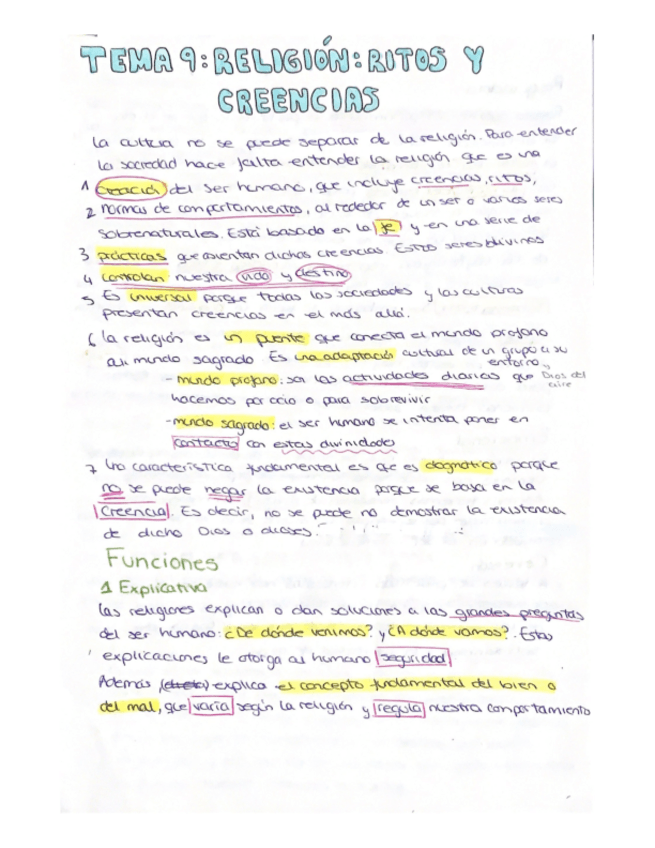 TEMA 9: RELIGIÓN: RITOS Y
CREENCIAS
La cultura no se puede separar de la religión. Para entender
la sociedad hace falta entender la religión que es una
1 creación del ser humano, que incluye creencias, ritos,
2 normas de comportamientos, al rededor de un ser o varios seres
sobrenaturales. Está basado en la fe y en una serie de
3 prácticas que asientan dichas creencias. Estos seres divinos
4 controlan nuestra vida y destino
5 Es universal porque todas las sociedades y las culturas
presentan creencias en el más allá.
6 la religión es un puente que conecta el mundo profano
al mundo sagrado. Es una adaptación cultural de un grupo a su
entorno
Dios del
aire
- mundo profano: son las actividades diarias que
hacemos por ocio o para sobrevivir
- mundo sagrado: el ser humano se intenta poner en
contacto con estas divinidades
7 Una característica fundamental es que es dogmático porque
no se puede negar la existencia porque se basa en la
Creencia. Es decir, no se puede no demostrar la existencia
de dicho Dios o dioses
Funciones
1 Explicativa
Las religiones explican o dan soluciones a las grandes preguntas
del ser humano: ¿De dónde venimos? y ¿A dónde vamos?. Estas
explicaciones le otorga al humano seguridad
Además explica el concepto fundamental del bien o
del mal, que varía según la religión y regula nuestro comportamiento